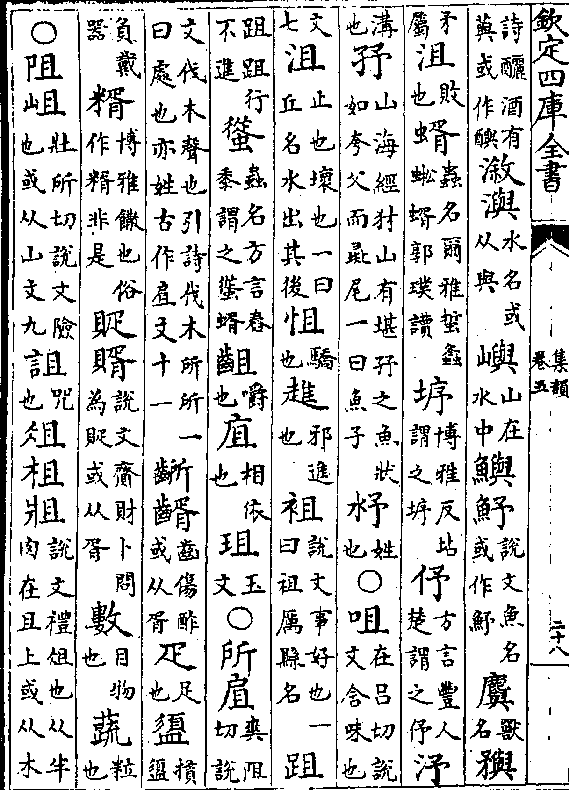 欽定四庫全書
集韻
卷五
二十八
詩釃酒有藇或作醧漵澳水名或从與嶼山在水中鱮魣說文魚名或作魣獸名
矛屬沮敗也蝑蟲名爾雅蜤螽蚣蝑郭璞讀垿博雅反坫謂之垿伃方言豐人楚謂之伃汿
溝也𡥼山海經犲山有堪𡥼之魚狀如夸父而彘尾一曰魚子姓也○咀在呂切說文含味也
文七沮止也壞也一曰丘名水出其後怚驕也邪進也袓說文事好也一曰袓厲縣名跙
跙跙行不進蟲名方言舂黍謂之蝑齟嚼也相依也珇玉文○所𢨷爽阻切說
文伐木聲也引詩伐木所所一曰處也亦姓古作𢨷文十一齭齼齒傷酢或从胥疋足也盨㯕盨
負戴器糈博雅饊也俗作糈非是說文齎財卜問為或从胥數目物也蔬粒也
○阻岨壯所切說文險也或从山文九詛咒也俎柤說文禮俎也从半肉在且上或从木